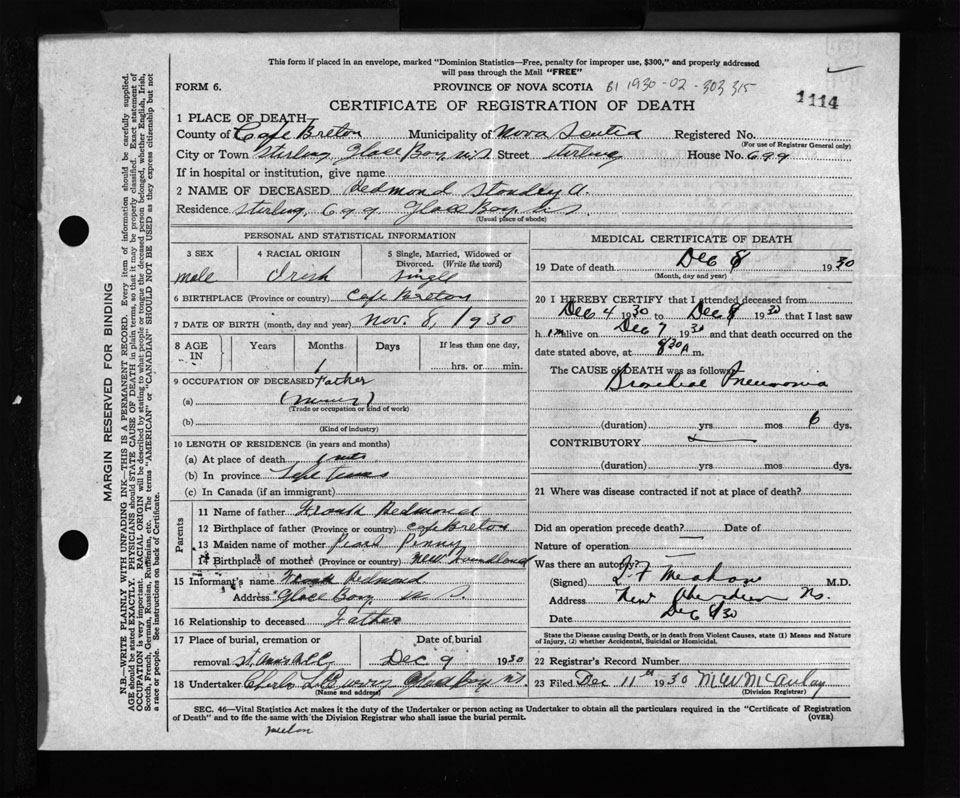 This form if placed in an envelope, marked "Dominion Statistics—Free, penalty for improper use, $300," and properly addressed
will pass through the Mail "FREE"
FORM 6. PROVINCE OF NOVA SCOTIA B1 1930-02-303315
CERTIFICATE OF REGISTRATION OF DEATH 1114
1 PLACE OF DEATH
County of Cape Breton Municipality of Nova Scotia Registered No.
(For use of Registrar General only)
City or Town Sterling Glace Bay N.S Street Sterling House No. 699
If in hospital or institution, give name
2 NAME OF DECEASED Redmond Stanley A.
Residence Sterling 699 Glace Bay N S
(Usual place of abode)
PERSONAL AND STATISTICAL INFORMATION
3 SEX 4 RACIAL ORIGIN 5 Single, Married, Widowed or
Divorced. (Write the word)
male Irish single
6 BIRTHPLACE (Province or country) Cape Breton
7 DATE OF BIRTH (month, day and year) Nov. 8, 1930
8 AGE IN Years Months Days If less than one day,
1 hrs. or min.
9 OCCUPATION OF DECEASED Father
(a) (miner)
(Trade or occupation or kind of work)
(b)
(Kind of industry)
10 LENGTH OF RESIDENCE (in years and months)
(a) At place of death
(b) In province
(c) In Canada (if an immigrant)
Parents
11 Name of father Frank Redmond
12 Birthplace of father (Province or country) Cape Breton
13 Maiden name of mother Pearl Penny
14 Birthplace of mother (Province or country) New Foundland
15 Informant's name Frank Redmond
Address Glace Bay N S.
16 Relationship to deceased Father
17 Place of burial, cremation or Date of burial
removal St. Anns Dec 9 1930
18 Undertaker Glace Bay N.S
(Name and address)
MEDICAL CERTIFICATE OF DEATH
19 Date of death Dec 8 1930
(Month, day and year)
20 I HEREBY CERTIFY that I attended deceased from
Dec 4 1930 to Dec 8 1930 that I last saw
h im alive on Dec 7 1930 and that death occurred on the
date stated above, at 830 A m.
The CAUSE of DEATH was as follows:
Bronchial Pneumonia
(duration) yrs mos 6 dys.
CONTRIBUTORY
(duration) yrs. mos dys.
21 Where was disease contracted if not at place of death?
Did an operation precede death? Date of
Nature of operation
Was there an autopsy?
(Signed) M.D.
Address New Aberdeen Ns.
Date Dec 8/30
State the Disease causing Death, or in death from Violent Causes, state (1) Means and Nature
of Injury, (2) whether Accidental, Suicidal or Homicidal.
22 Registrar's Record Number
23 Filed Dec 11th 1930 M W McAulay
(Division Registrar)
SEC. 46—Vital Statistics Act makes it the duty of the Undertaker or person acting as Undertaker to obtain all the particulars required in the "Certificate of Registration
of Death" and to file the same with the Division Registrar who shall issue the burial permit. (OVER)
MARGIN RESERVED FOR BINDING
N.B.—WRITE PLAINLY WITH UNFADING INK—THIS IS A PERMANENT RECORD. Every item of information should be carefully supplied.
AGE should be stated EXACTLY. PHYSICIANS should STATE CAUSE OF DEATH in plain terms, so that it may be properly classified. Exact statement of
OCCUPATION is very important. RACIAL ORIGIN will be described by stating to what people or tongue the deceased person belonged, whether English, Irish,
Scotch, French, German, Russian, Ruthenian, etc. The terms "AMERICAN" or "CANADIAN" SHOULD NOT BE USED as they express citizenship but not
a race or people. See instructions on back of Certificate.